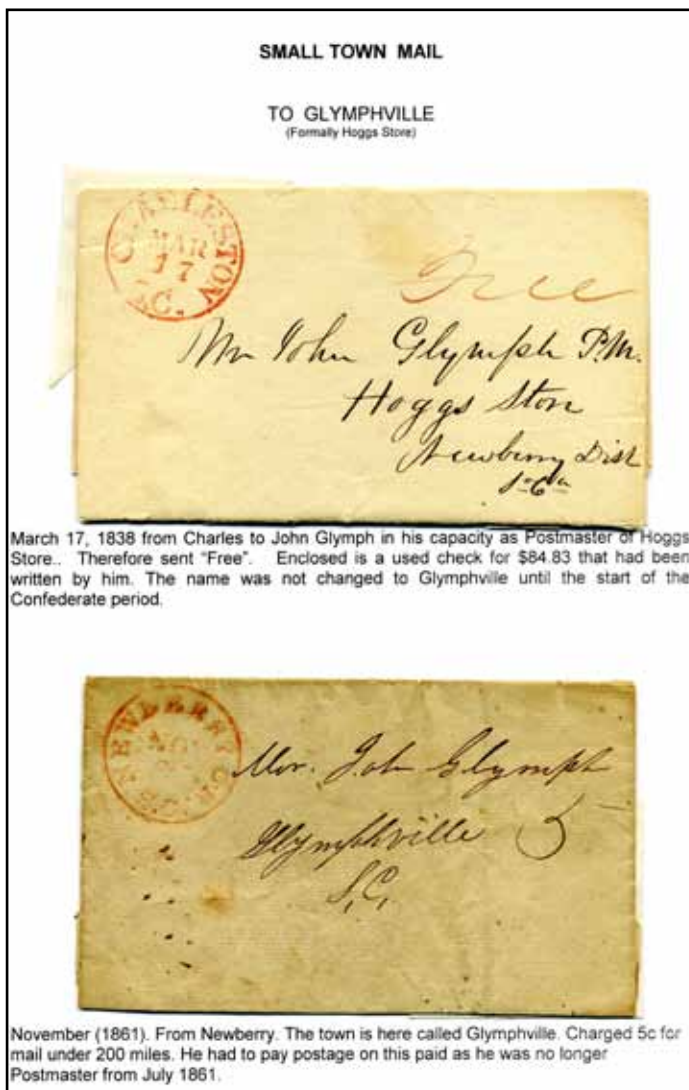 SMALL TOWN MAIL
TO GLYMPHVILLE
(Formally Hoggs Store)
CHARLESTON
MAR
17
S.C.
Free
Mr John Glymph P.M.
Hoggs Store
Newberry Dist
So Ca
March 17, 1838 from Charles to John Glymph in his capacity as Postmaster of Hoggs
Store.. Therefore sent "Free". Enclosed is a used check for $84.83 that had been
written by him. The name was not changed to Glymphville until the start of the
Confederate period.
NEWBERRY C.H. S.C.
NOV
Mr. John Glymph
Glymphville 5
S,C,
November (1861). From Newberry. The town is here called Glymphville. Charged 5c for
mail under 200 miles. He had to pay postage on this paid as he was no longer
Postmaster from July 1861.